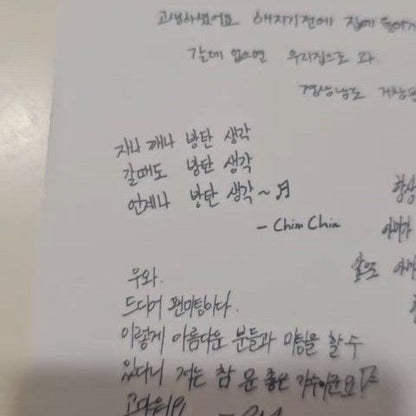 고생하셨어요 해지기전에 집에
갈데 없으면 우리집으로 와.
경상남도 거창군
자나 깨나 방탄 생각
갈때도 방탄 생각
언제나 방탄 생각~♬
- Chim Chim
항상
아미가
우와.
드디어 팬미팅이다.
이렇게 아름다운 분들과 미팅을 할 수
있다니 저는 참 운 좋은 가수이군요!
고마워요